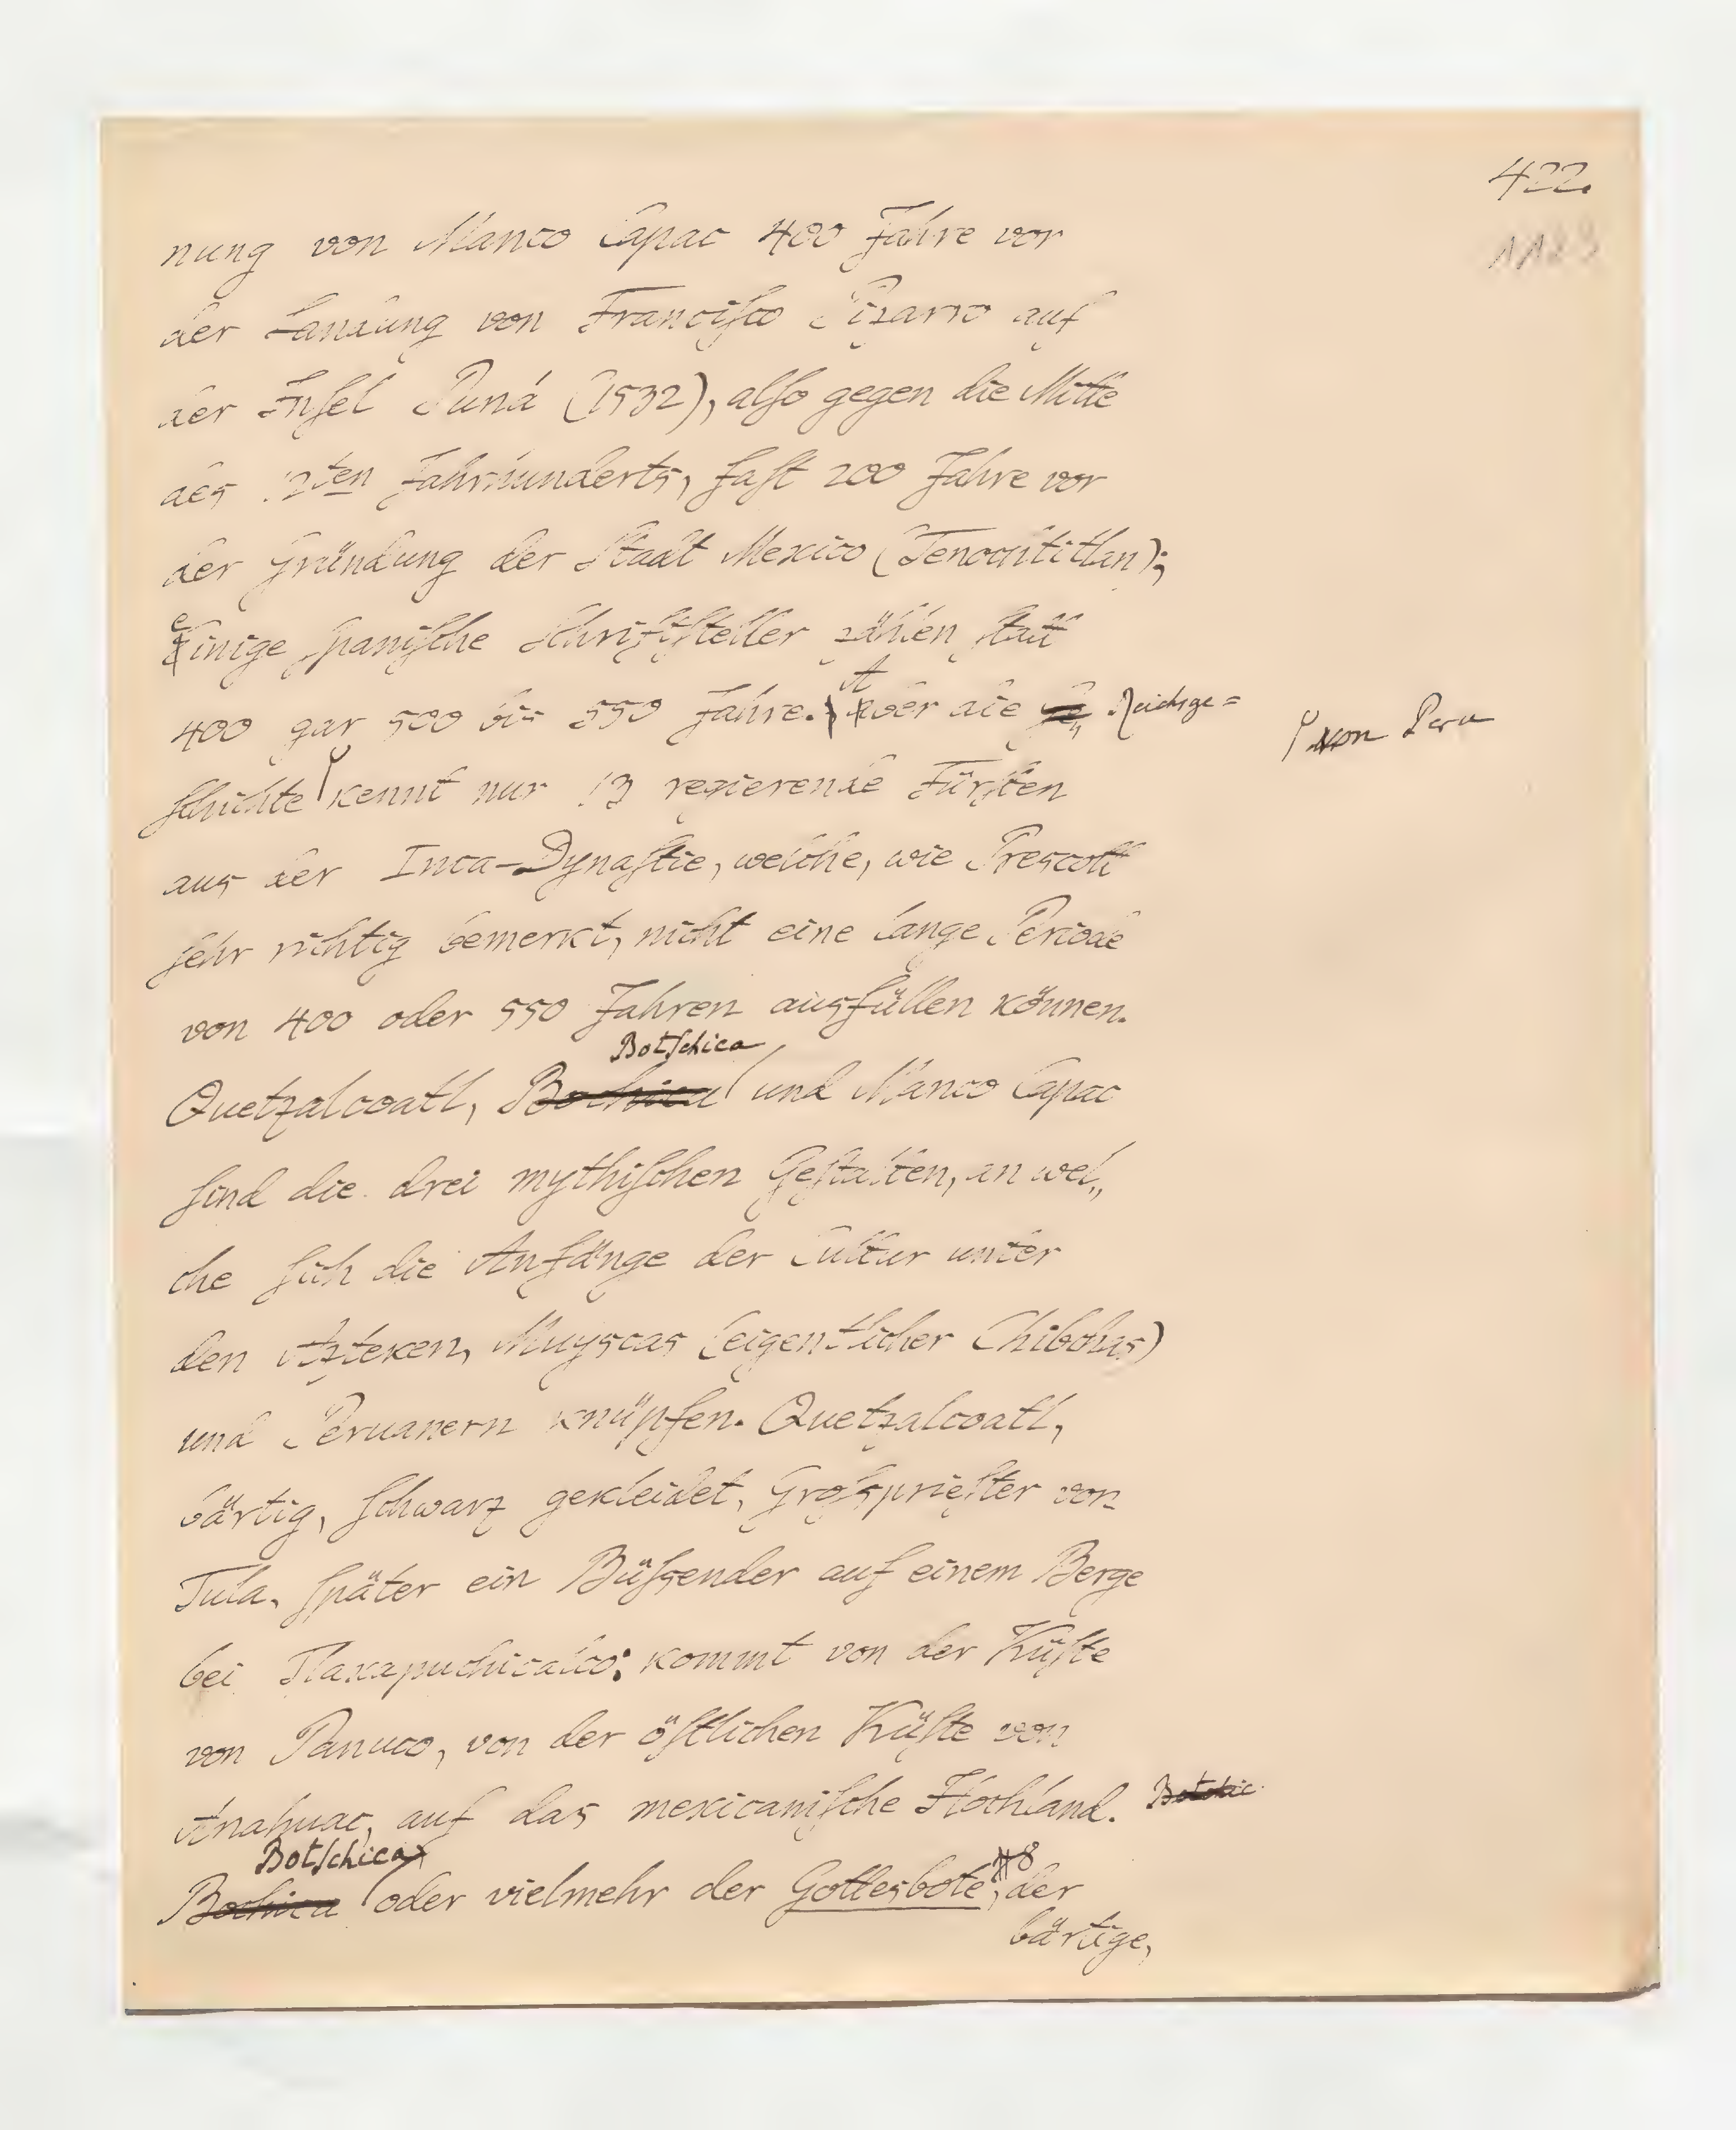 422.
nung von Manco Capac 400 Jahre vor
der Landung von Franciſco Pizarro auf
der Inſel Puná (1532), alſo gegen die Mitte
des 12ten Jahrhunderts, faſt 200 Jahre vor
der Gründung der Stadt Mexico (Tenochtitlan);
einige ſpaniſche Schriftſteller zählen ſtatt
400 gar 500 bis 550 Jahre. Aber die Reichsge=
ſchichte von Peru kennt nur 13 regierende Fürſten
aus der Inca-Dynaſtie, welche, wie Prescott
ſehr richtig bemerkt, nicht eine lange Periode
von 400 oder 550 Jahren ausfüllen können.
Botſchica
Quetzalcoatl, Bochica und Manco Capac
ſind die drei mythiſchen Geſtalten, an wel„
che ſich die Anfänge der Cultur unter
den Azteken, Muyscas (eigentlicher Chibchas)
und Peruanern knüpfen. Quetzalcoatl,
bärtig, ſchwarz gekleidet, Groſsprieſter von
Tula, ſpäter ein Büſsender auf einem Berge
bei Tlaxapuchicalco: kommt von der Küſte
von Panuco, von der öſtlichen Küſte von
Anahuac, auf das mexicaniſche Hochland.
Botſchica
Bochica oder vielmehr der Gottesbote, der
bärtige,